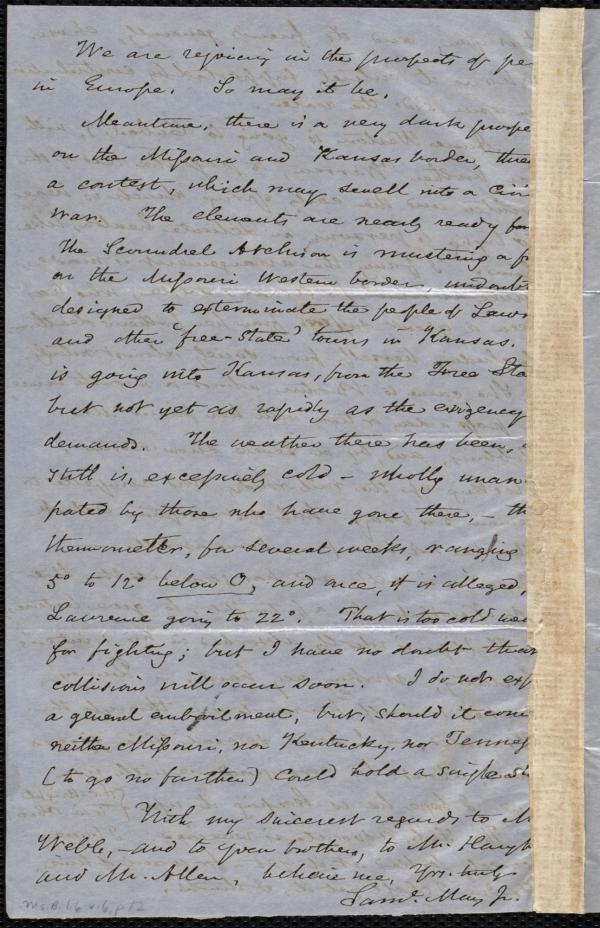 We are rejoicing in the prospects of pe
in Europe. So may it be.
Meantime, there is a very dark prospe
on the Missouri and Kansas border, thre
a contest, which may swell into a civi
war. The elements are nearly ready for
The Scoundrel Atchison is mustering a f
on the Missouri Western border, undoubt
designed to exterminate the people of Lawr
and other "free-State" towns in Kansas.
is going into Kansas, from the Free Sta
but not yet as rapidly as the exigency
demands. The weather there has been,
still is, excessively cold – wholly unan
pated by those who have gone there, – th
thermometer, for several weeks, ranging
5° to 12° below 0, and once, it is alleged,
Lawrence going to 22°. That is too cold wea
for fighting; but I have no doubt that
collisions will occur soon. I do not exp
a general embroilment, but, should it com
neither Missouri, nor Kentucky, nor Tennes
(to go no further) could hold a single sl
With my sincerest regards to M
Webb, – and to your brothers, to Mr. Haugh
and Mr. Allen, believe me, Yrs. truly
Saml. May Jr.
Ms. B. 1.6 v. 6, p 12